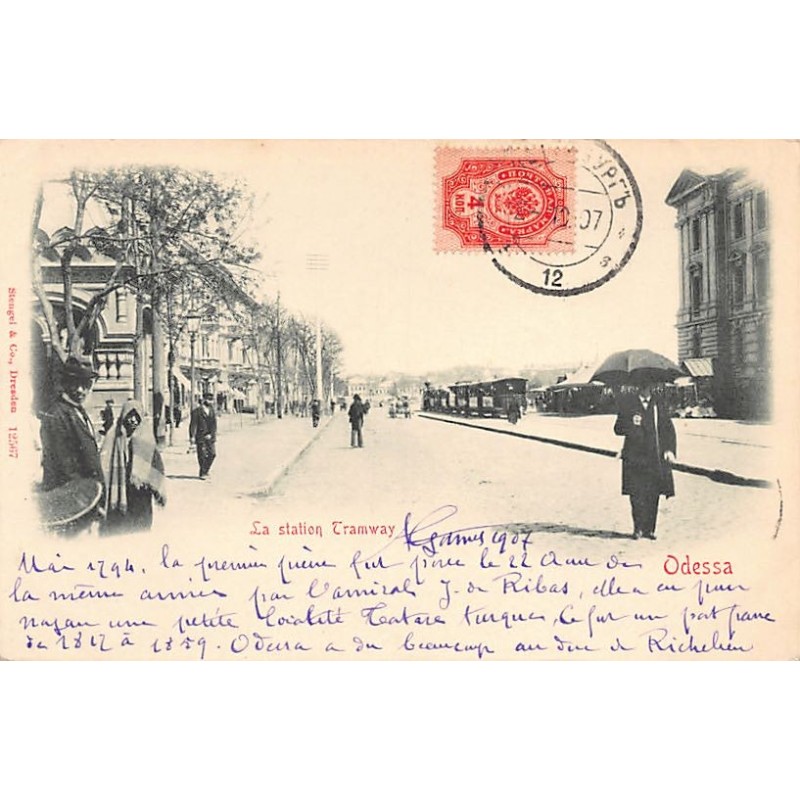 4 КОП
ПОЧТОВАЯ МАРКА
УРГЪ
07
12
Stengel & Co., Dresden 12567
La station Tramway
1907
Odessa
Mai 1794. la premier pière fut posée le 22 Aou de
la même année par l'amiral J. de Ribas, elle a eu pour
une petite localité Tatare turque, ce fut un port franc
de 1817 à 1859. Odessa a du beaucoup au duc de Richelieu